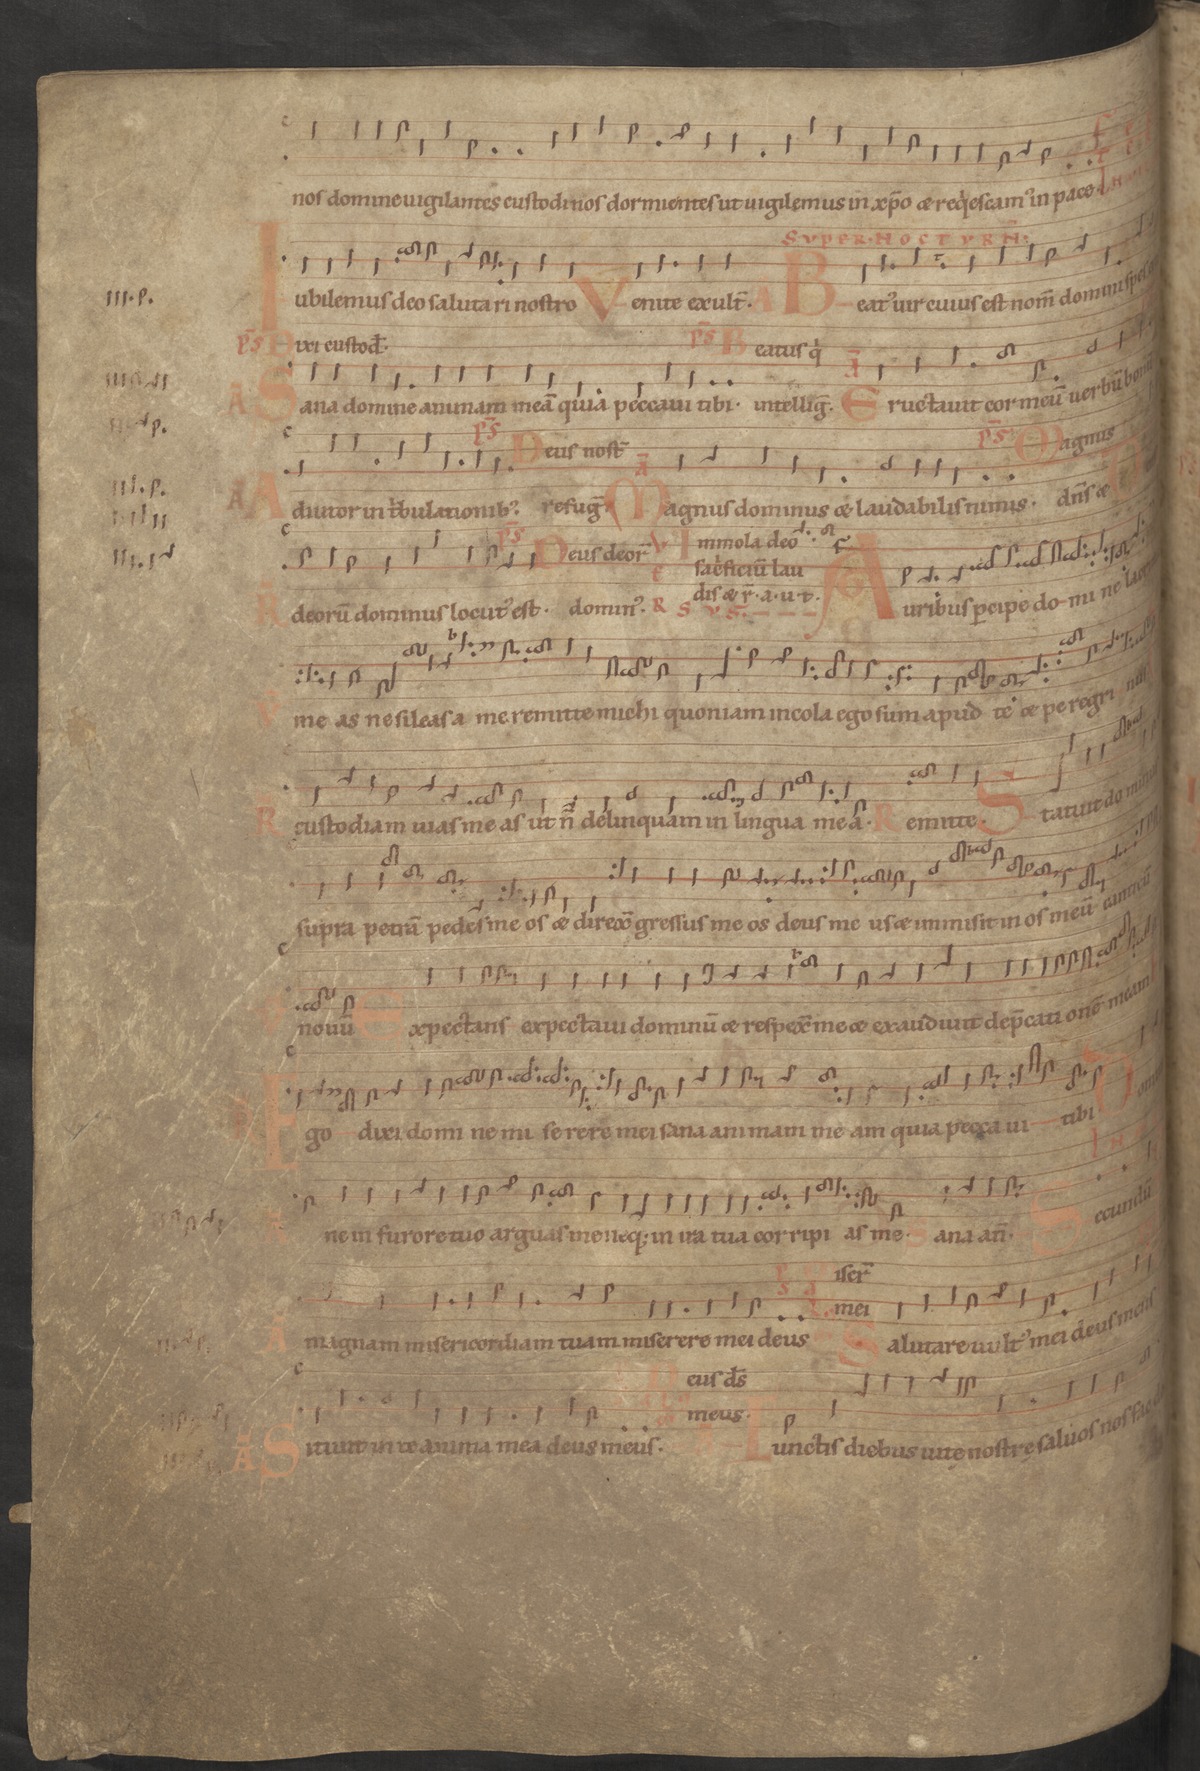 nos domine uigilantes custodi nos dormientes ut uigilemus in xp̄o & req̇escam' in pace.
SVPER NOCTVRN̄.
Iubilemus deo salutari nostro Venite exult̄. A Beat' uir cuius est nom̄ domini spes
pṡ Dixi custod̄. pṡ Beatus q̇
A Sana domine animam meā quia peccaui tibi. intelliḡ. A Eructauit cor meū uerbū bonū
pṡ Deus nost̄ pṡ Magnus
A Adiutor in t̄bulationib'. refuḡ. A Magnus dominus & laudabilis nimis. dn̄s &
pṡ Deus deor̄ V Immola deo
sac̄ficiū lau
dis & r̄. a. u. t.
deorū dominus locut' est. domin'. Auribus pcipe domine
me as ne sileas a me remitte michi quoniam incola ego sum apud te & peregri nus
custodiam uias me as ut n̄ delinquam in lingua mea. R Remitte. Statuit dominus
supra petrā pedes me os & direx̄ gressus me os deus me us & immisit in os meū canticū
nouū Expectans expectaui dominū & respex̄ me & exaudiuit dep̄cati onē meam
Ego dixi domi ne mi serere mei sana animam me am quia pecca ui tibi
ne in furore tuo arguas me neq; in ira tua corripi as me. Sana an̄. Secundū
iser̄
mei
magnam misericordiam tuam miserere mei deus Salutare uult' mei deus meus
Deus ds̄
meus.
A Sitiuit in te anima mea deus meus. Iunctis diebus uite nostre saluos nos fac